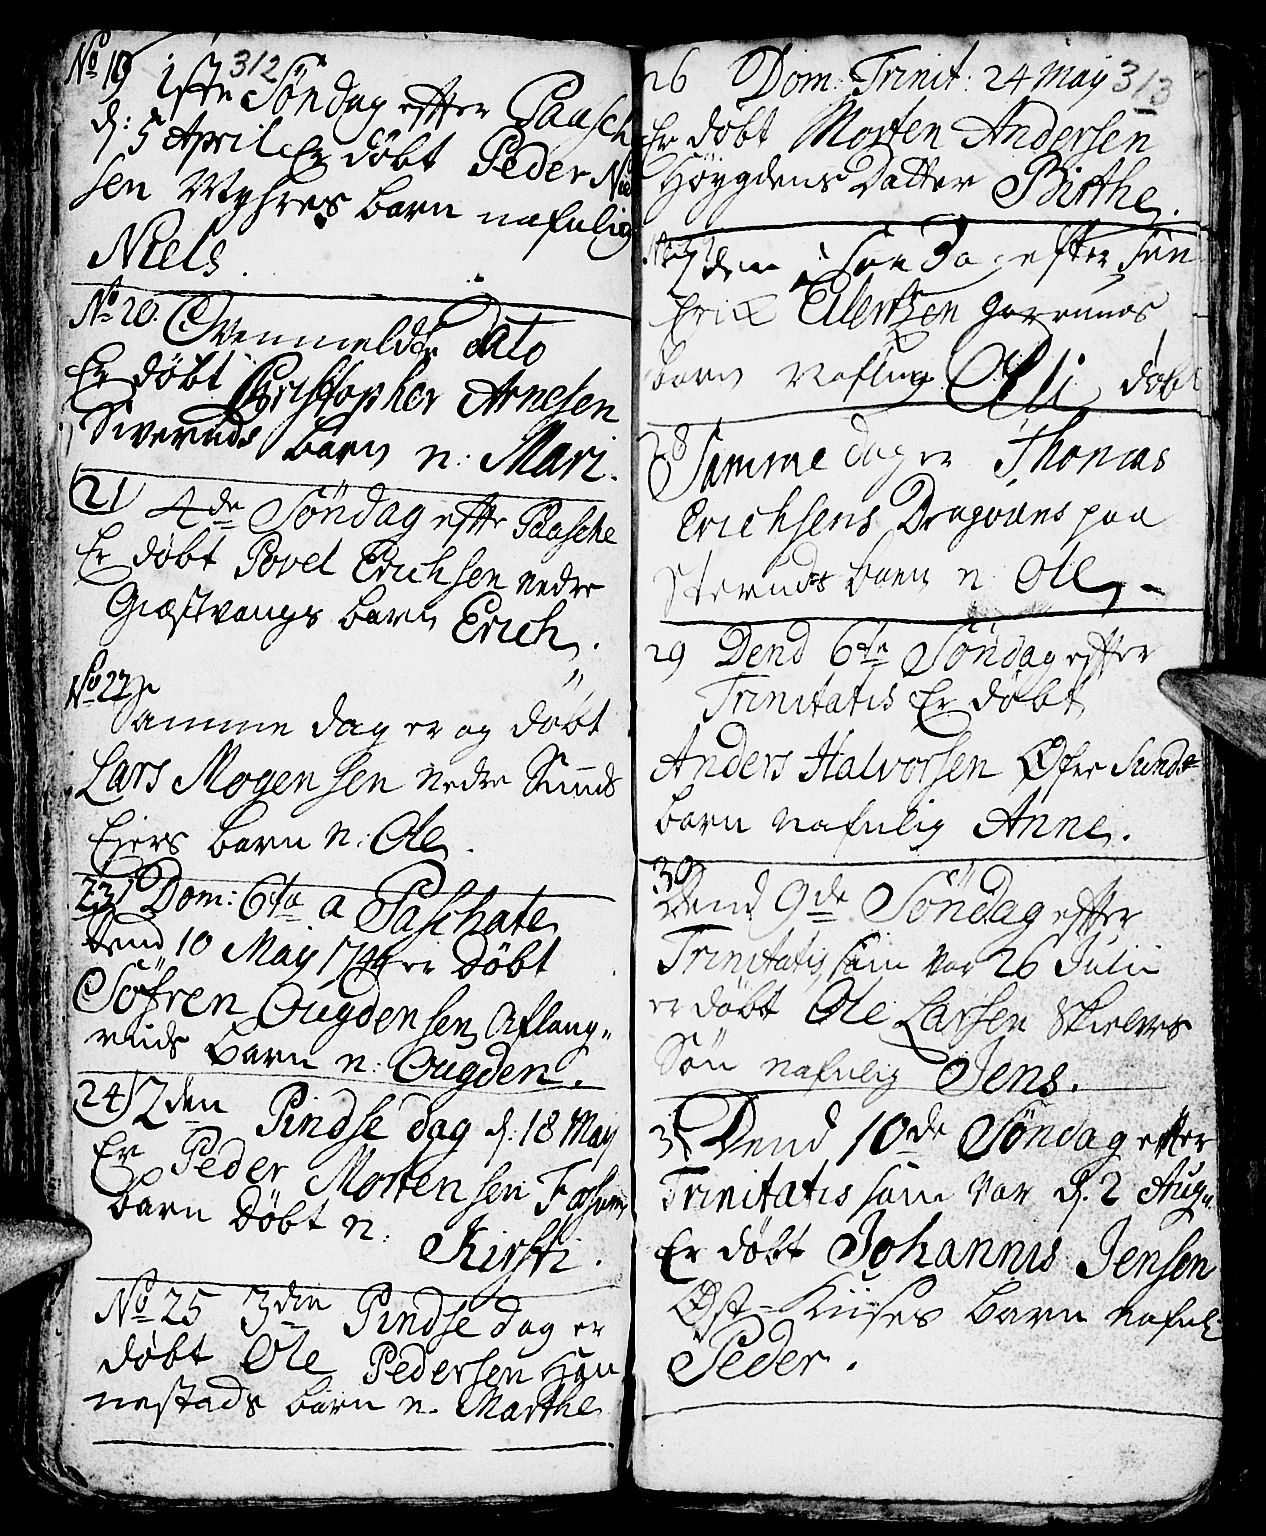 312
No 19 1ste Söndag efter Paasch
d: 5 April Er döbt Peder Niel
sen Myhres barn nafnlig
Niels.
No 20. Ovenmeldte Dato
Er döbt Christopher Arnesen
Siveruds barn n: Mari.
21 4de Söndag efter Paasche
Er döbt Povel Erichsen nedre
Giæstvangs barn Erich.
No 22
Samme dag er og döbt
Lars Mogensen nedre Sunds
Eiers barn n: Ole.
23 Dom: 6ta a Paschate
Dend 10 May er Döbt
Söfren Ougdensen Aflang„
ruds barn n: Ougden.
24 2den Pindse dag d: 18 May
Er Peder Mortensen Fossums
barn Döbt n: Kirsti.
No 25 3die Pindse dag er
döbt Ole Pedersen Hon
nestads barn n. Marthe
313
26 Dom: Trinit: 24 May
Er döbt Morten Andersen
Höygdens Datter Birthe.
den Söndag efter
Erick Eilertsen
barn Nafnlig Eli döbt
28 Samme dag er Thomas
Erichsens Dragouns paa
Steruds barn n: Ole.
29 Dend 6te Söndag efter
Trinitatis Er döbt
Anders Halvorsen Öfre Sunds
barn nafnlig Anne.
30
Dend 9de Söndag efter
Trinitatis, som var 26 Julii
er döbt Ole Larsen Skielves
Sön nafnlig Jens.
31 Dend 10de Söndag efter
Trinitatis som var d. 2 Aug„
Er döbt Johannis Jensen
Öst-Kiises barn nafnl:
Peder.